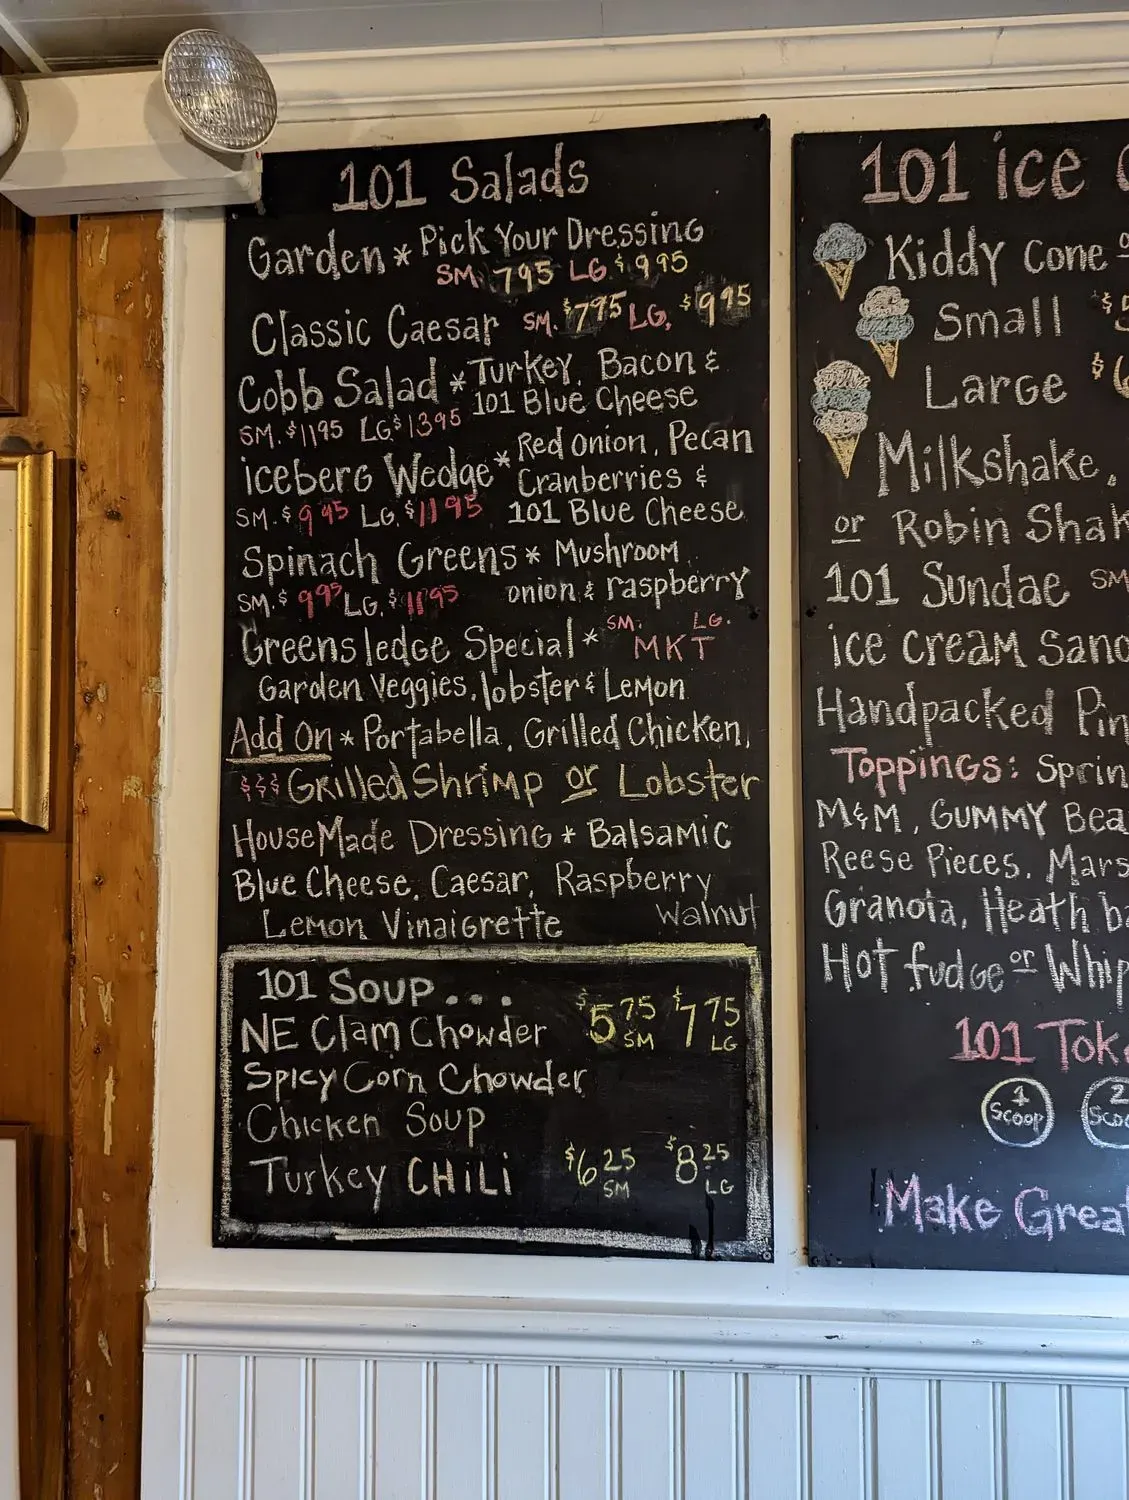 101 Salads
Garden * Pick Your Dressing
SM. 795 LG $9.95
Classic Caesar SM. $7.95 LG. $9.95
Cobb Salad * Turkey, Bacon &
101 Blue Cheese
SM. $11.95 LG $13.95
iceberg Wedge * Red Onion, Pecan
Cranberries &
SM. $9.95 LG. $11.95 101 Blue Cheese
Spinach Greens * Mushroom
onion & raspberry
SM $9.95 LG. $11.95
Greensledge Special * SM. LG.
MKT
Garden Veggies, lobster & Lemon
Add On * Portabella, Grilled Chicken,
$$$ Grilled Shrimp or Lobster
HouseMade Dressing * Balsamic
Blue Cheese, Caesar, Raspberry
Lemon Vinaigrette Walnut
101 Soup...
NE Clam Chowder $5.75 SM $7.75 LG
Spicy Corn Chowder
Chicken Soup
Turkey CHiLi $6.25 SM $8.25 LG
101 ice
Kiddy Cone
Small
Large
Milkshake,
or Robin Shak
101 Sundae SM
ice cream Sand
Handpacked Pin
Toppings: Sprin
M&M, Gummy Bea
Reese Pieces, Mars
Granola, Heath ba
Hot fudge or Whip
101 Tok
1 Scoop 2 Scoo
Make Great